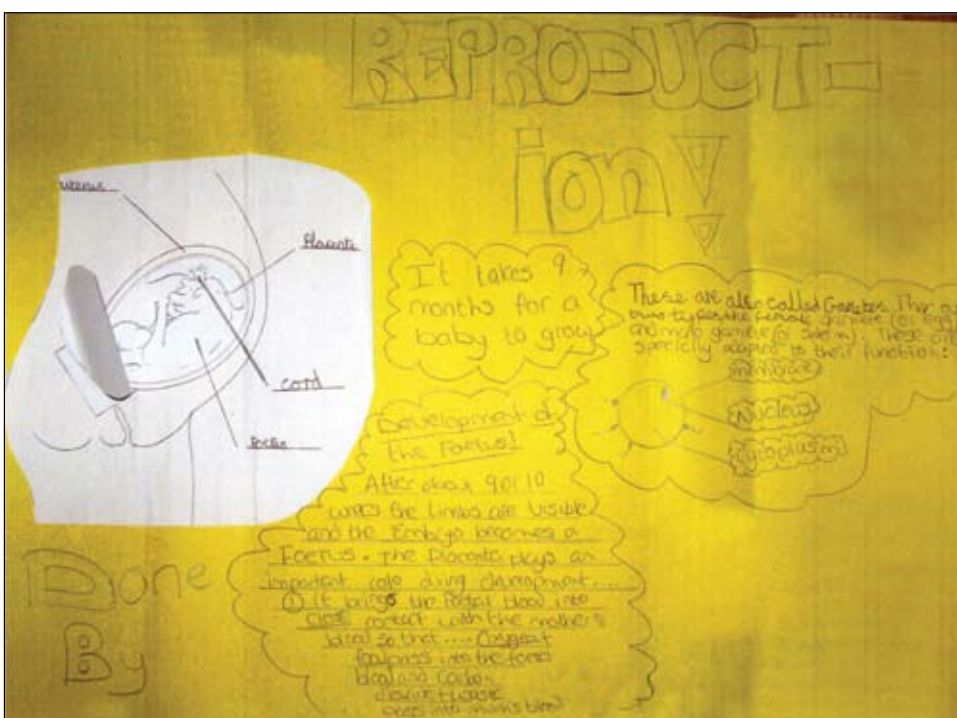 REPRODUCT-
ion!
uterus
Placenta
cord
foetus
It takes 9
months for a
baby to grow
These are also called Gametes. Ther are
two types the female gamete (or egg
and male gamete (or These are
specially to their function:
membrane
Nucleus
Cytoplasm
Development of
the Foetus!
After about 9 or 10
weeks the limbs are visible
and the Embryo becomes a
Foetus. The Placenta plays an
important role during development....
① It brings the Foetal blood into
close contact with the mothers
blood so that....
pass into the
blood and
waste
into mum's blood
Done
By